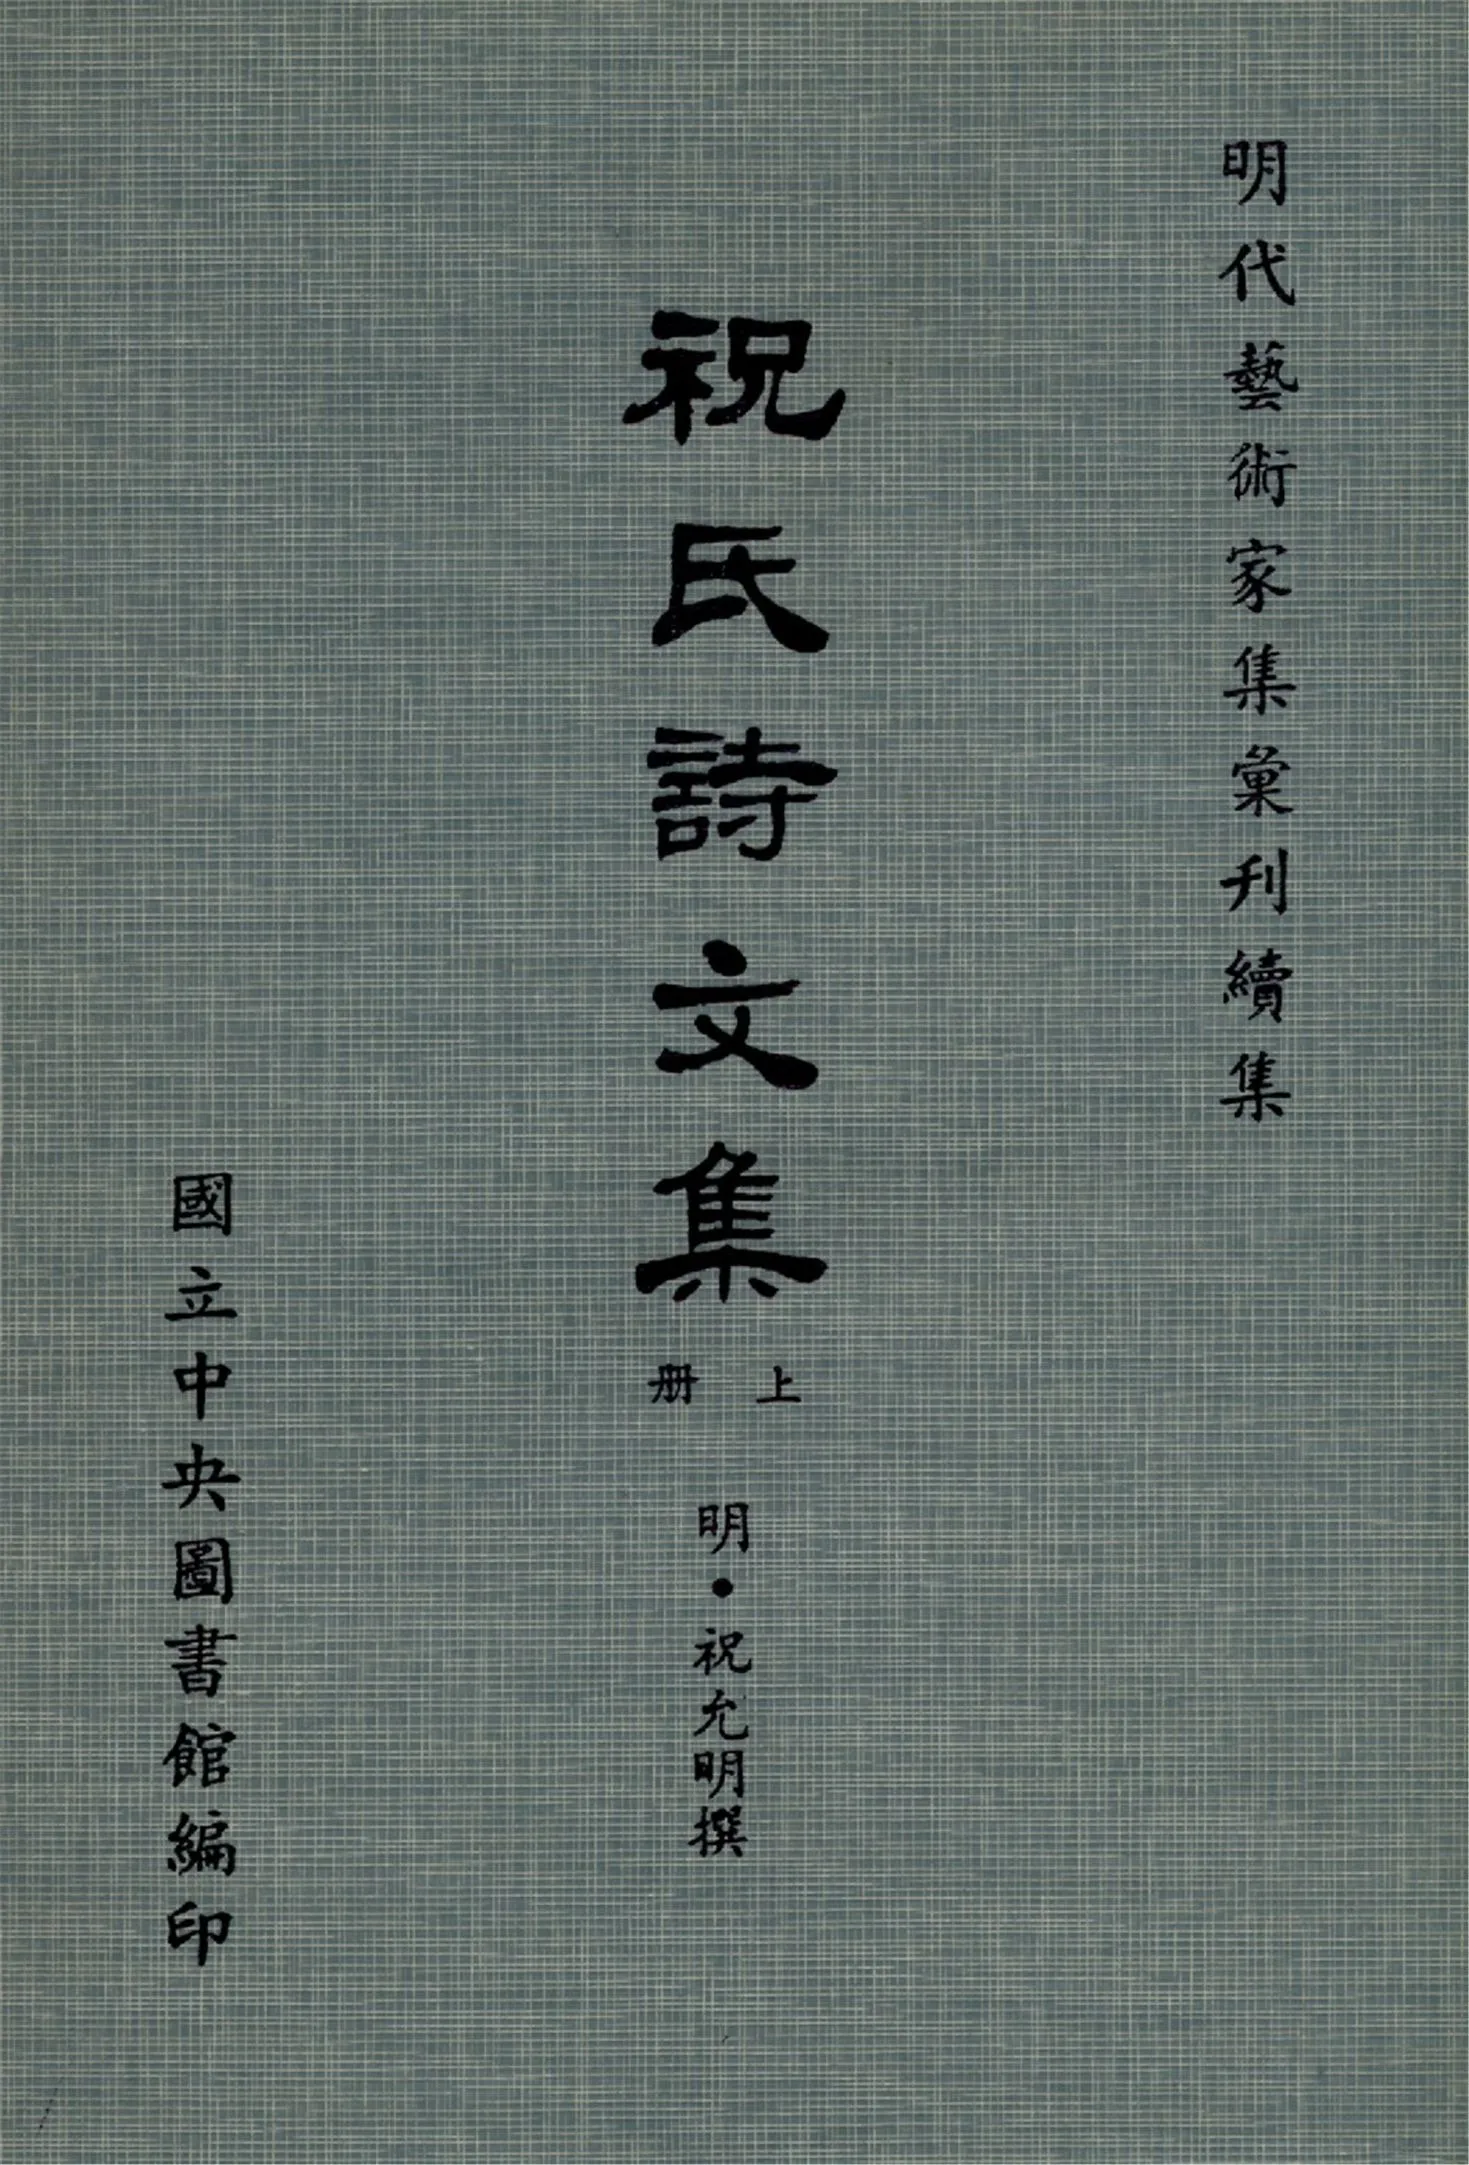 明代藝術家集彙刊續集
祝氏詩文集
上册
明•祝允明撰
國立中央圖書館編印